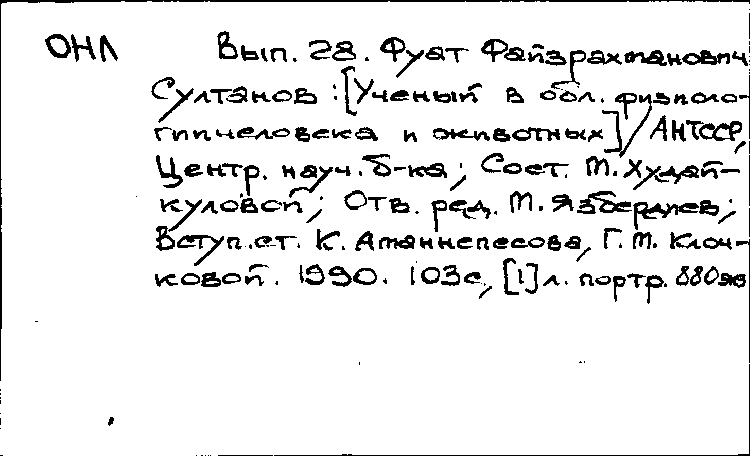 ОНЛ Вып. 28. Фуат Файзрахманович
Султанов : [Ученый в обл. физиоло-
гии человека и животных] / АН ТССР,
Центр. науч. б-ка; Сост. М. Худай-
куловой; Отв. ред. М. Язбердиев;
Вступ. ст. К. Аманнепесова, Г. М. Клоч-
ковой. 1990. 103с, [1] л. портр. 880 экз